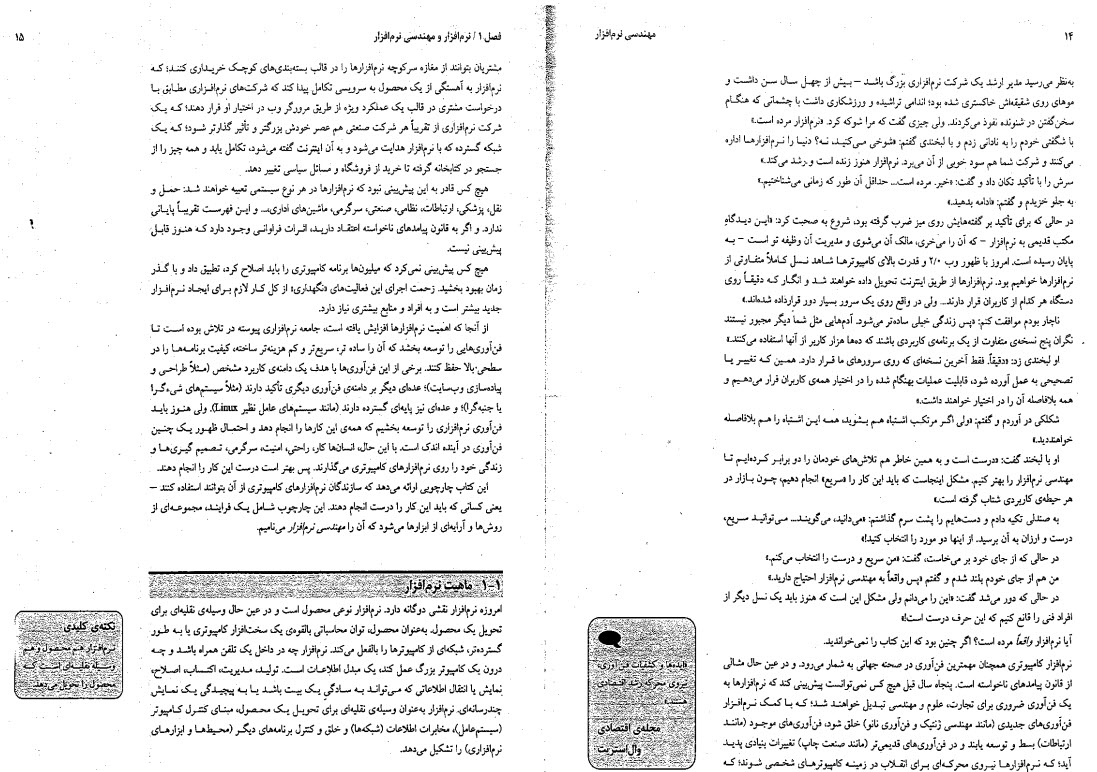 ۱۴
مهندسی نرم‌افزار
به‌نظر می‌رسید مدیر ارشد یک شرکت نرم‌افزاری بزرگ باشد – بیش از چهل سال سن داشت و
موهای روی شقیقه‌اش خاکستری شده بود؛ اندامی تراشیده و ورزشکاری داشت با چشمانی که هنگام
سخن‌گفتن در شنونده نفوذ می‌کردند. ولی چیزی گفت که مرا شوکه کرد. «نرم‌افزار مرده است.»
با شگفتی خودم را به نادانی زدم و با لبخندی گفتم: «شوخی می‌کنید، نه؟ دنیا را نرم‌افزارها اداره
می‌کنند و شرکت شما هم سود خوبی از آن می‌برد. نرم‌افزار هنوز زنده است و رشد می‌کند.»
سرش را با تأکید تکان داد و گفت: «خیر. مرده است... حداقل آن طور که زمانی می‌شناختیم.»
به جلو خزیدم و گفتم: «ادامه بدهید.»
در حالی که برای تأکید بر گفته‌هایش روی میز ضرب گرفته بود، شروع به صحبت کرد: «این دیدگاهِ
مکتب قدیمی به نرم‌افزار – که آن را می‌خری، مالک آن می‌شوی و مدیریت آن وظیفه تو است – به
پایان رسیده است. امروز با ظهور وب ۲/۰ و قدرت بالای کامپیوترها شاهد نسل کاملاً متفاوتی از
نرم‌افزارها خواهیم بود. نرم‌افزارها از طریق اینترنت تحویل داده خواهند شد و انگار که دقیقاً روی
دستگاه هر کدام از کاربران قرار دارند... ولی در واقع روی یک سرور بسیار دور قرارداده شده‌اند.»
ناچار بودم موافقت کنم: «پس زندگی خیلی ساده‌تر می‌شود. آدم‌هایی مثل شما دیگر مجبور نیستند
نگران پنج نسخه‌ی متفاوت از یک برنامه‌ی کاربردی باشند که ده‌ها هزار کاربر از آنها استفاده می‌کنند.»
او لبخندی زد: «دقیقاً. فقط آخرین نسخه‌ای که روی سرورهای ما قرار دارد. همین که تغییر یا
تصحیحی به عمل آورده شود، قابلیت عملیات بهنگام شده را در اختیار همه‌ی کاربران قرار می‌دهیم و
همه بلافاصله آن را در اختیار خواهند داشت.»
شکلکی در آوردم و گفتم: «ولی اگر مرتکب اشتباه هم بشوید، همه این اشتباه را هم بلافاصله
خواهنددید.»
او با لبخند گفت: «درست است و به همین خاطر هم تلاش‌های خودمان را دو برابر کرده‌ایم تا
مهندسی نرم‌افزار را بهتر کنیم. مشکل اینجاست که باید این کار را «سریع» انجام دهیم، چون بازار در
هر حیطه‌ی کاربردی شتاب گرفته است.»
به صندلی تکیه دادم و دست‌هایم را پشت سرم گذاشتم: «می‌دانید، می‌گویند... می‌توانید سریع،
درست و ارزان به آن برسید. از اینها دو مورد را انتخاب کنید!»
در حالی که از جای خود بر می‌خاست، گفت: «من سریع و درست را انتخاب می‌کنم.»
من هم از جای خودم بلند شدم و گفتم «پس واقعاً به مهندسی نرم‌افزار احتیاج دارید.»
در حالی که دور می‌شد گفت: «این را می‌دانم ولی مشکل این است که هنوز باید یک نسل دیگر از
افراد فنی را قانع کنیم که این حرف درست است!»
آیا نرم‌افزار واقعاً مرده است؟ اگر چنین بود که این کتاب را نمی‌خواندید.
نرم‌افزار کامپیوتری همچنان مهمترین فن‌آوری در صحنه جهانی به شمار می‌رود. و در عین حال مثالی
از قانون پیامدهای ناخواسته است. پنجاه سال قبل هیچ کس نمی‌توانست پیش‌بینی کند که نرم‌افزارها به
یک فن‌آوری ضروری برای تجارت، علوم و مهندسی تبدیل خواهند شد؛ که با کمک نرم‌افزار
فن‌آوری‌های جدیدی (مانند مهندسی ژنتیک و فن‌آوری نانو) خلق شود، فن‌آوری‌های موجود (مانند
ارتباطات) بسط و توسعه یابند و در فن‌آوری‌های قدیمی‌تر (مانند صنعت چاپ) تغییرات بنیادی پدید
آید؛ که نرم‌افزارها نیروی محرکه‌ای برای انقلاب در زمینه کامپیوترهای شخصی شوند؛ که
«ایده‌ها و کشفیات فن‌آوری،
نیروی محرکه رشد اقتصادی
هستند.»
مجله‌ی اقتصادی
وال‌استریت
فصل ۱ / نرم‌افزار و مهندسی نرم‌افزار
۱۵
مشتریان بتوانند از مغازه سرکوچه نرم‌افزارها را در قالب بسته‌بندی‌های کوچک خریداری کنند؛ که
نرم‌افزار به آهستگی از یک محصول به سرویسی تکامل پیدا کند که شرکت‌های نرم‌افزاری مطابق با
درخواست مشتری در قالب یک عملکرد ویژه از طریق مرورگر وب در اختیار او قرار دهند؛ که یک
شرکت نرم‌افزاری از تقریباً هر شرکت صنعتی هم عصر خودش بزرگتر و تأثیر گذارتر شود؛ که یک
شبکه گسترده که با نرم‌افزار هدایت می‌شود و به آن اینترنت گفته می‌شود، تکامل یابد و همه چیز را از
جستجو در کتابخانه گرفته تا خرید از فروشگاه و مسائل سیاسی تغییر دهد.
هیچ کس قادر به این پیش‌بینی نبود که نرم‌افزارها در هر نوع سیستمی تعبیه خواهند شد: حمل و
نقل، پزشکی، ارتباطات، نظامی، صنعتی، سرگرمی، ماشین‌های اداری،... و این فهرست تقریباً پایانی
ندارد. و اگر به قانون پیامدهای ناخواسته اعتقاد دارید، اثرات فراوانی وجود دارد که هنوز قابل
پیش‌بینی نیست.
هیچ کس پیش‌بینی نمی‌کرد که میلیون‌ها برنامه کامپیوتری را باید اصلاح کرد، تطبیق داد و با گذر
زمان بهبود بخشید. زحمت اجرای این فعالیت‌های «نگهداری» از کل کار لازم برای ایجاد نرم‌افزار
جدید بیشتر است و به افراد و منابع بیشتری نیاز دارد.
از آنجا که اهمیت نرم‌افزارها افزایش یافته است، جامعه نرم‌افزاری پیوسته در تلاش بوده است تا
فن‌آوری‌هایی را توسعه بخشد که آن را ساده تر، سریع‌تر و کم هزینه‌تر ساخته، کیفیت برنامه‌ها را در
سطحی بالا حفظ کنند. برخی از این فن‌آوری‌ها با هدف یک دامنه‌ی کاربرد مشخص (مثلاً طراحی و
پیاده‌سازی وب‌سایت)؛ عده‌ای دیگر بر دامنه‌ی فن‌آوری دیگری تأکید دارند (مثلاً سیستم‌های شیءگرا
یا جنبه‌گرا)؛ و عده‌ای نیز پایه‌ای گسترده دارند (مانند سیستم‌های عامل نظیر Linux). ولی هنوز باید
فن‌آوری نرم‌افزاری را توسعه بخشیم که همه‌ی این کارها را انجام دهد و احتمال ظهور یک چنین
فن‌آوری در آینده اندک است. با این حال، انسان‌ها کار، راحتی، امنیت، سرگرمی، تصمیم گیری‌ها و
زندگی خود را روی نرم‌افزارهای کامپیوتری می‌گذارند. پس بهتر است درست این کار را انجام دهند.
این کتاب چارچوبی ارائه می‌دهد که سازندگان نرم‌افزارهای کامپیوتری از آن بتوانند استفاده کنند –
یعنی کسانی که باید این کار را درست انجام دهند. این چارچوب شامل یک فرایند، مجموعه‌ای از
روش‌ها و آرایه‌ای از ابزارها می‌شود که آن را مهندسی نرم‌افزار می‌نامیم.
۱-۱- ماهیت نرم‌افزار
امروزه نرم‌افزار نقشی دوگانه دارد. نرم‌افزار نوعی محصول است و در عین حال وسیله‌ی نقلیه‌ای برای
تحویل یک محصول. به‌عنوان محصول، توان محاسباتی بالقوه‌ی یک سخت‌افزار کامپیوتری یا به طور
گسترده‌تر، شبکه‌ای از کامپیوترها را بالفعل می‌کند. نرم‌افزار چه در داخل یک تلفن همراه باشد و چه
درون یک کامپیوتر بزرگ عمل کند، یک مبدل اطلاعات است. تولید، مدیریت، اکتساب، اصلاح،
نمایش یا انتقال اطلاعاتی که می‌تواند به سادگی یک بیت باشد یا به پیچیدگی یک نمایش
چندرسانه‌ای. نرم‌افزار به‌عنوان وسیله‌ی نقلیه‌ای برای تحویل یک محصول، مبنای کنترل کامپیوتر
(سیستم‌عامل)، مخابرات اطلاعات (شبکه‌ها) و خلق و کنترل برنامه‌های دیگر (محیط‌ها و ابزارهای
نرم‌افزاری) را تشکیل می‌دهد.
نکته‌ی کلیدی
نرم‌افزار هم محصول و هم
وسیله نقلیه‌ای است که
محصول را تحویل می‌دهد.